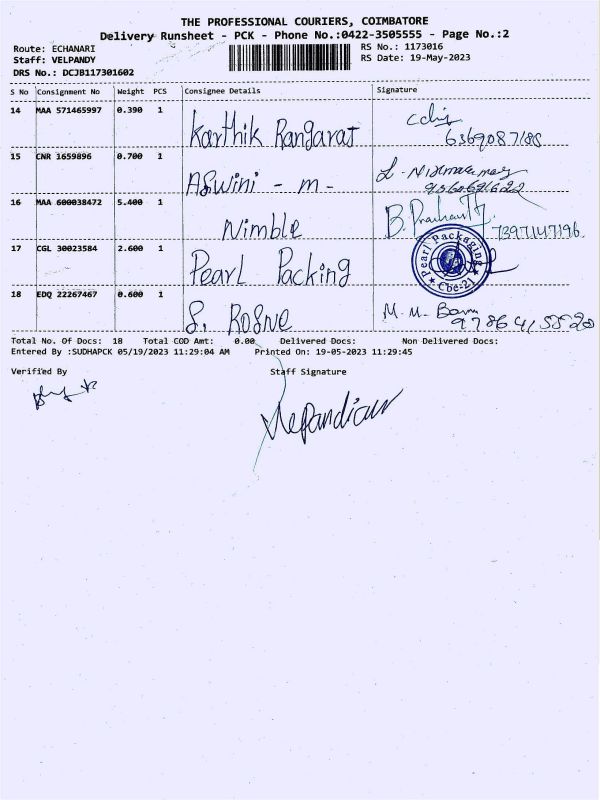 THE PROFESSIONAL COURIERS, COIMBATORE
Delivery Runsheet - PCK - Phone No.:0422-3505555 - Page No.:2
Route: ECHANARI
RS No.: 1173016
Staff: VELPANDY
RS Date: 19-May-2023
DRS No.: DCJB117301602
S No Consignment No Weight PCS Consignee Details Signature
14 MAA 571465997 0.390 1 Karthik Rangaraj
15 CNR 1659896 0.700 1 Aswini - m -
16 MAA 600038472 5.400 1 Nimble 7397147196
17 CGL 30023584 2.600 1 Pearl Packing
Pearl Packaging
★ Cbe-21 ★
18 EDQ 22267467 0.600 1 S.
Total No. Of Docs: 18 Total COD Amt: 0.00 Delivered Docs: Non Delivered Docs:
Entered By :SUDHAPCK 05/19/2023 11:29:04 AM Printed On: 19-05-2023 11:29:45
Verified By Staff Signature